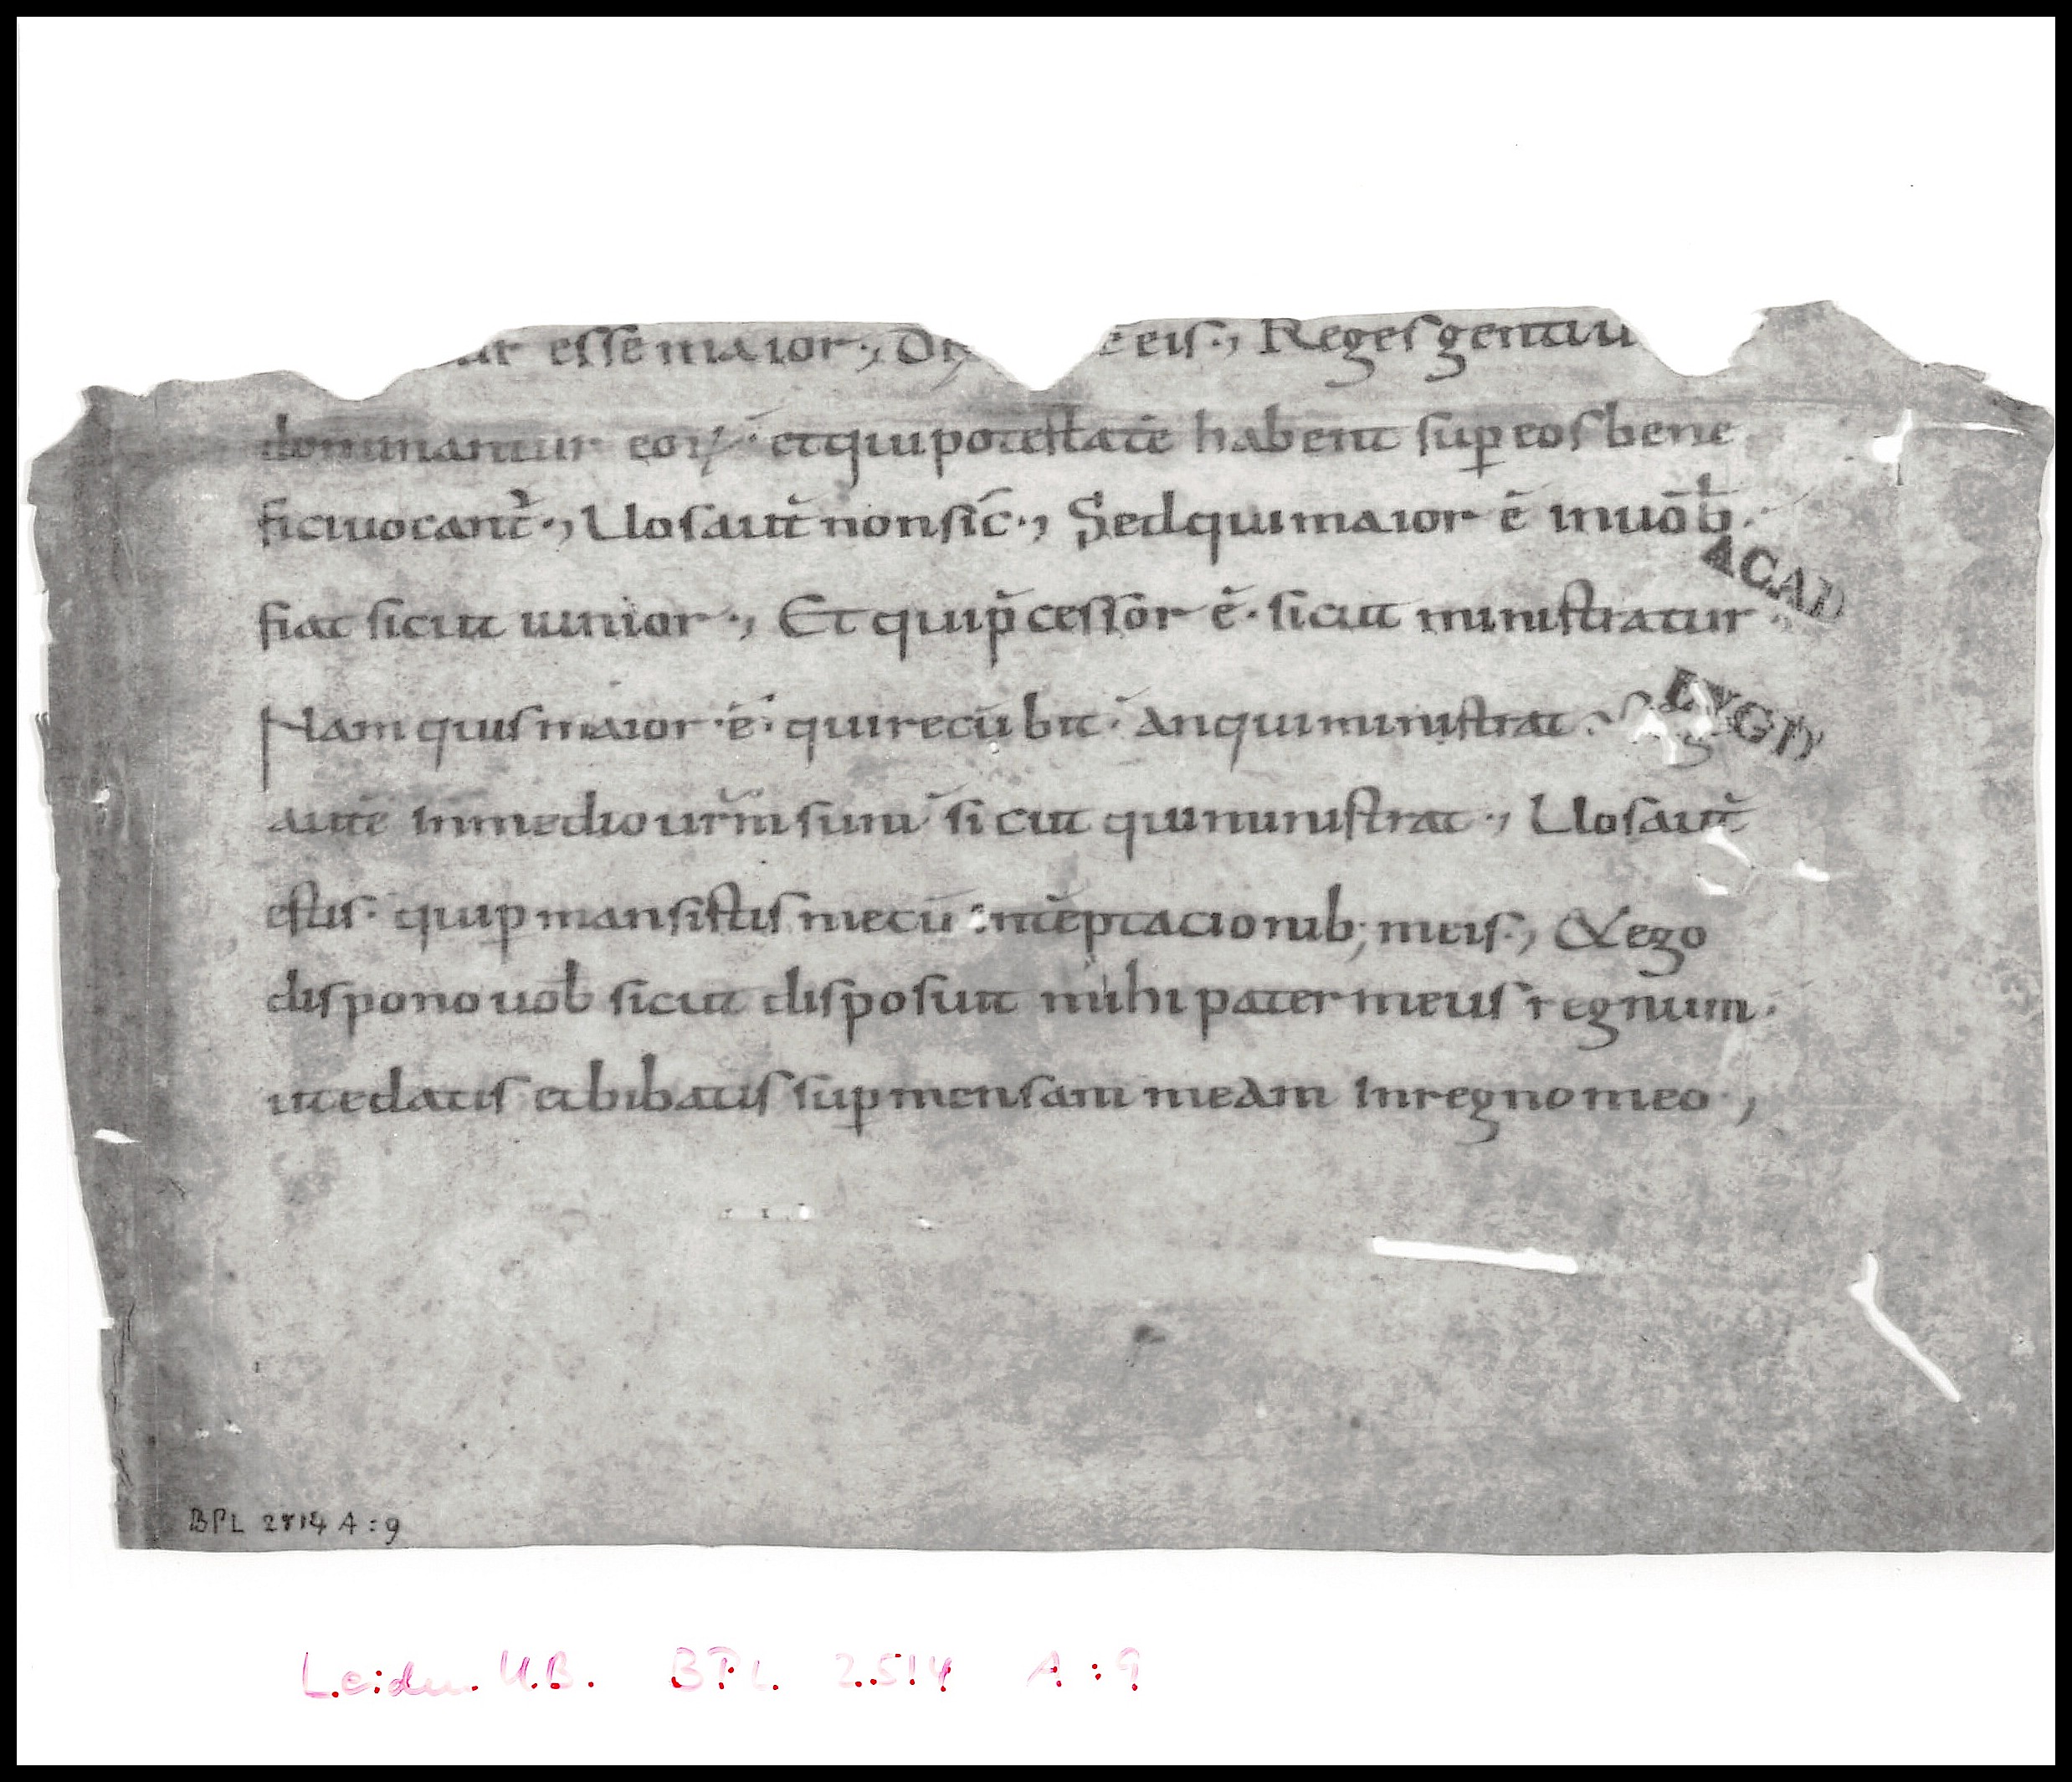 ur esse maior·, Dix e eis·, Reges gentiu
dominantur eoꝝ· et qui potestatē habent suꝑ eos bene
fici uocant̄·, Uos aut̄ non sic·, Sed qui maior ē in uob̄·
fiat sicut iunior·, Et qui p̄cessor ē· sicut ministratur
ACAD
Nam quis maior ē· qui recūbit· an qui ministrat·
LVGD
autē in medio ur̄m sum sicut qui ministrat·, Uos aut̄
estis· qui ꝑmansistis mecū in tēptacionib; meis·, & ego
dispono uob sicut disposuit mihi pater meus regnum·
ut edatis et bibatis suꝑ mensam meam in regno meo·,
BPL 2514 A:9
Leiden U.B. BPL 2514 A:9